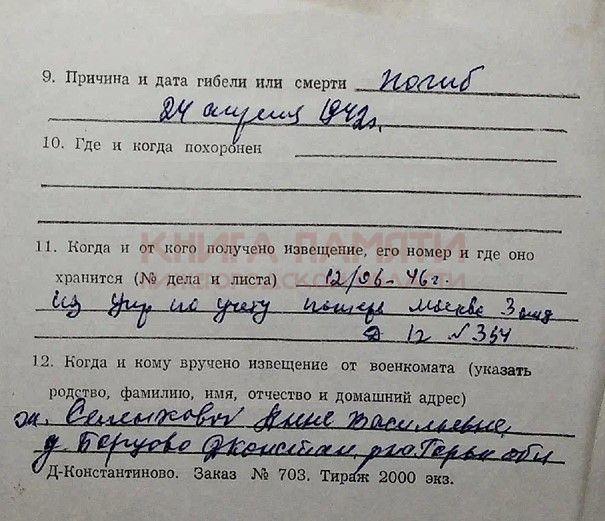 9. Причина и дата гибели или смерти погиб
24 апреля 1942г.
10. Где и когда похоронен
КНИГА ПАМЯТИ
НИЖЕГОРОДСКОЙ ОБЛАСТИ
11. Когда и от кого получено извещение, его номер и где оно
хранится (№ дела и листа) 12/06-46г.
из упр по учету потерь Москва 3 отд
Д 12 № 354
12. Когда и кому вручено извещение от военкомата (указать
родство, фамилию, имя, отчество и домашний адрес)
Анне Васильевне
д. Борцово Дконстан. рна Горьк обл
Д-Константиново. Заказ № 703. Тираж 2000 экз.